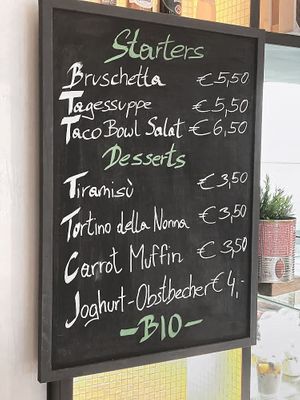 Starters
Bruschetta €5,50
Tagessuppe €5,50
Taco Bowl Salat €6,50
Desserts
Tiramisù €3,50
Tortino della Nonna €3,50
Carrot Muffin €3,50
Joghurt-Obstbecher €4,-
-BIO-